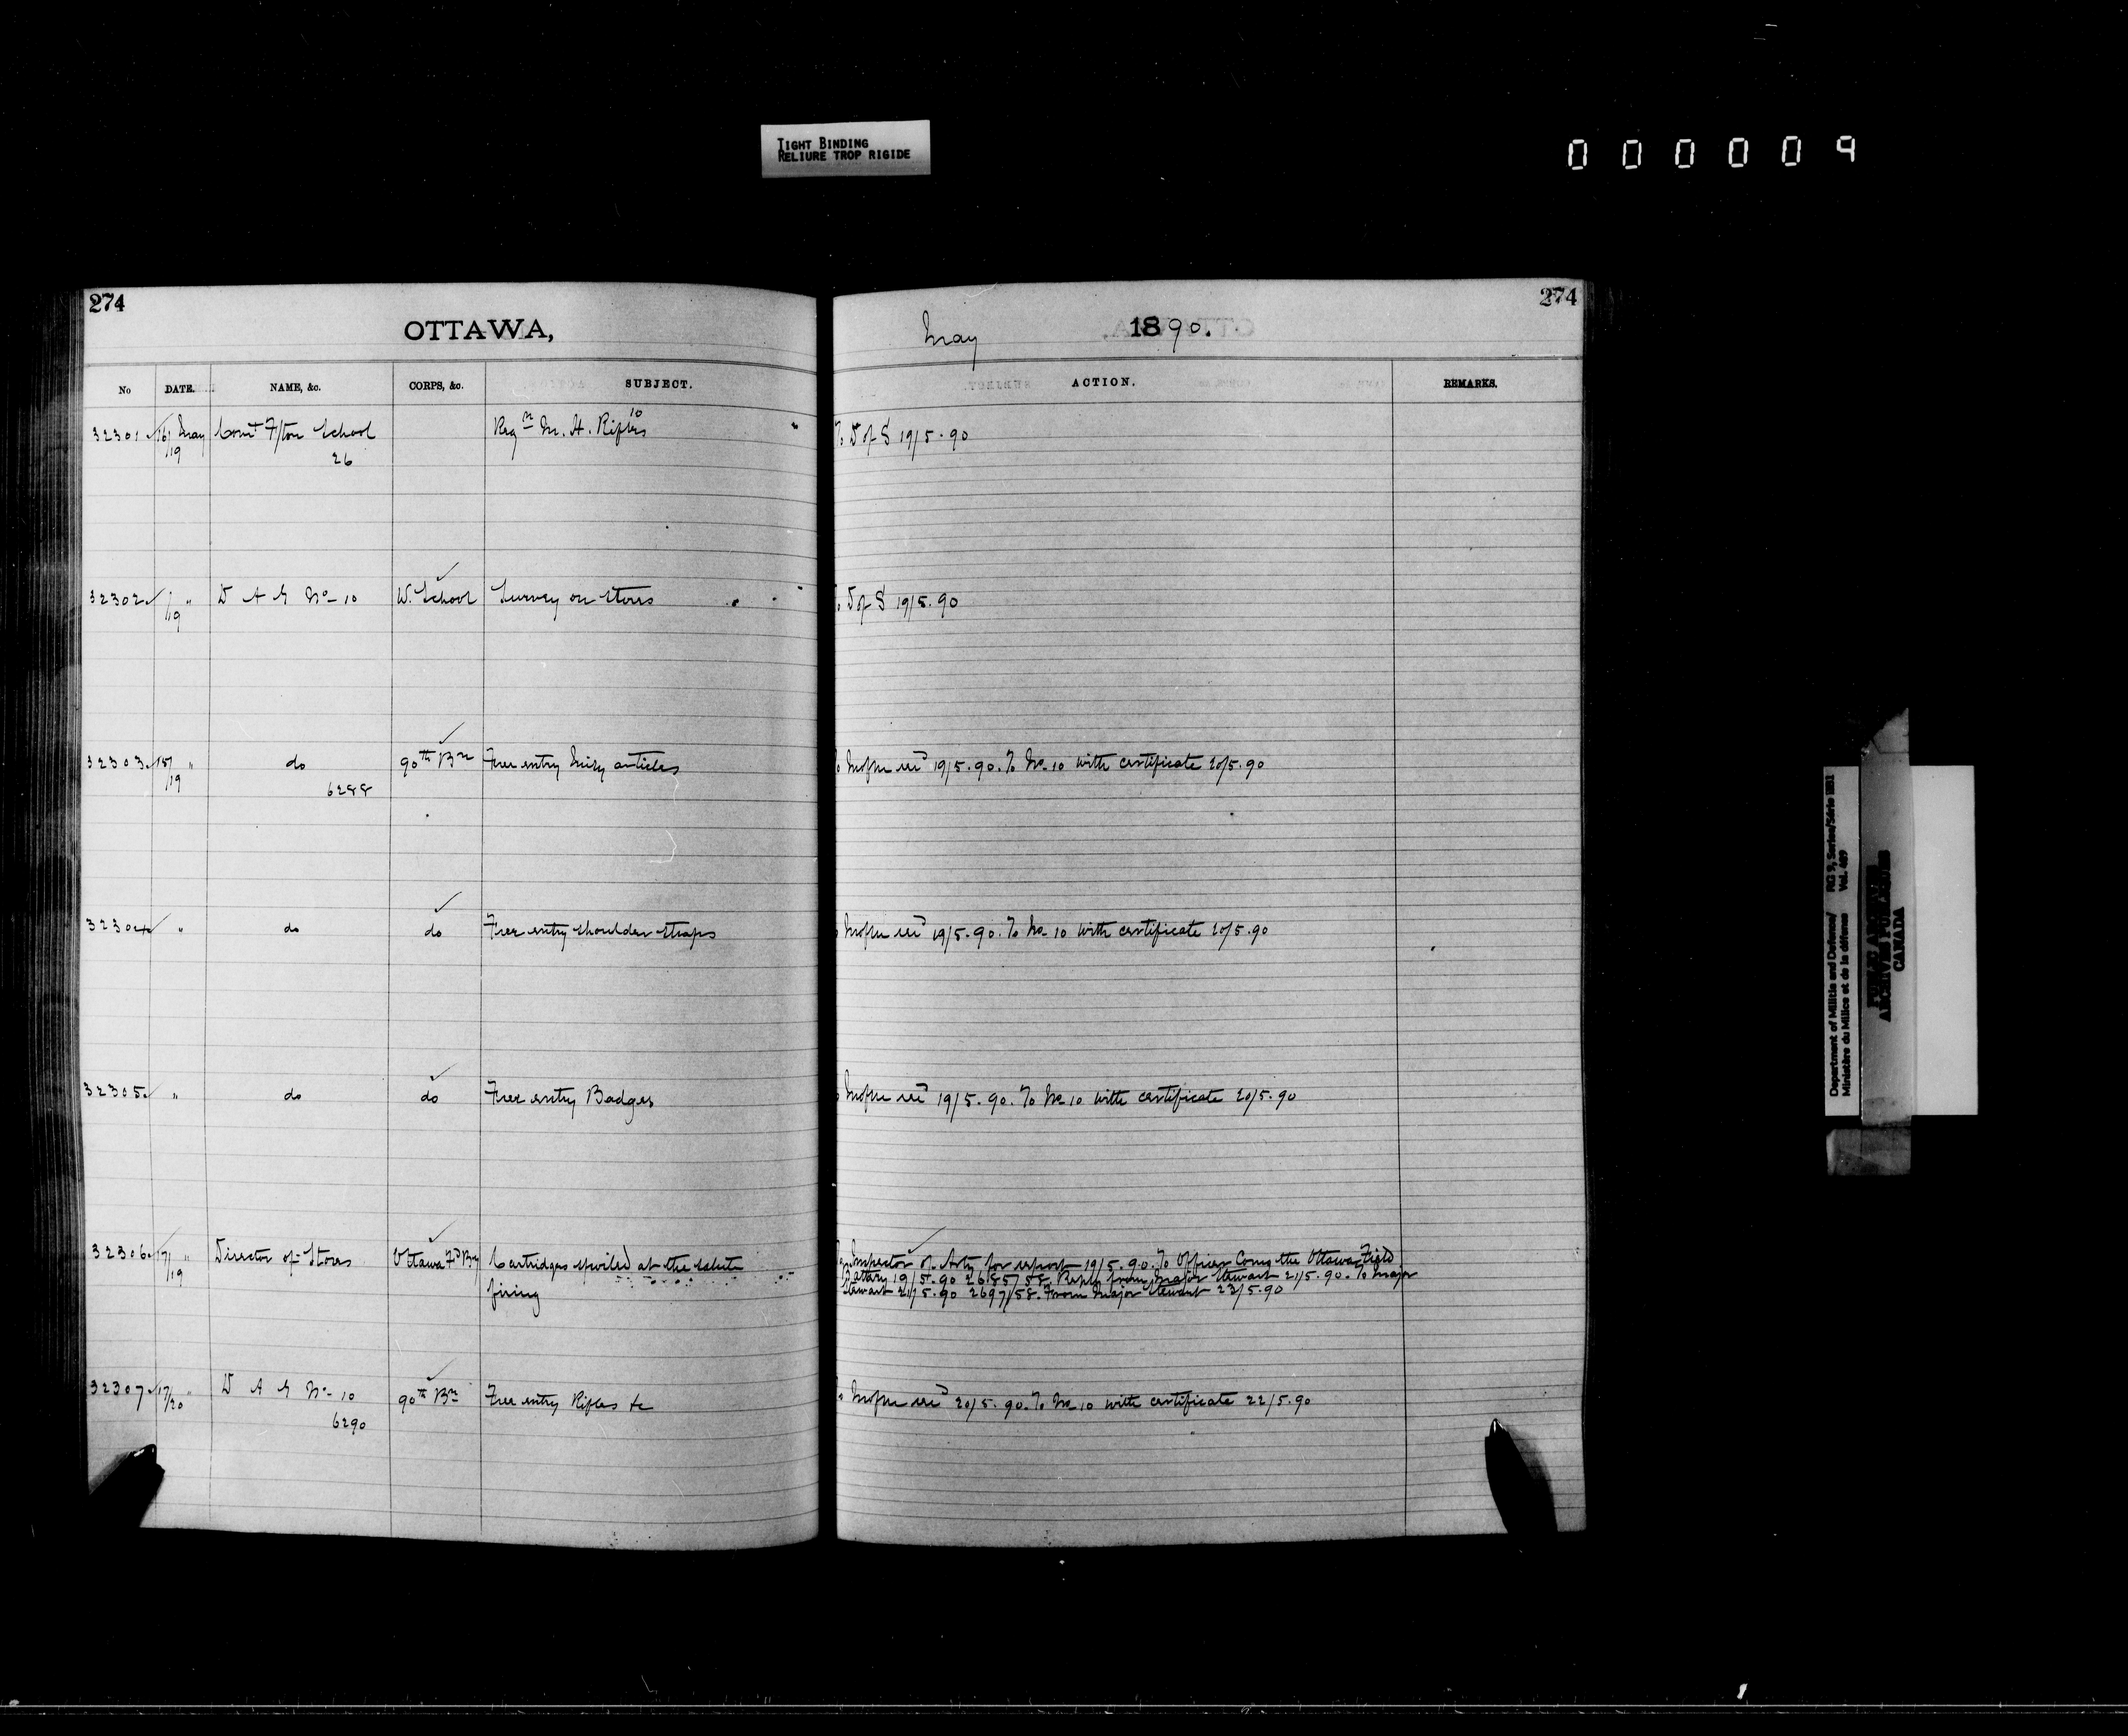 TIGHT BINDING
RELIURE TROP RIGIDE
000009
274
OTTAWA,
No DATE. NAME, &c. CORPS, &c. SUBJECT.
32301 16/19 May Comt F/ton School 26 Regn M. H. Rifles 10
32302 /19 " D A G No 10 W. School Survey on Stores
32303 15/19 " do 6288 90th Bn Free entry articles
32304 " do do Free entry shoulder straps
32305 " do do Free entry Badges
32306 17/19 " Director of Stores Ottawa Fd By Cartridges spoiled at the salute
firing
32307 17/20 " D A G No 10 6290 90th Bn Free entry Rifles &c
274
May 1890.
ACTION. REMARKS.
To D of S 19/5.90
To D of S 19/5.90
19/5.90. To No 10 with certificate 20/5.90
19/5.90. To No 10 with certificate 20/5.90
19/5.90. To No 10 with certificate 20/5.90
Inspector of Arty for report 19/5.90. To Officer Comg the Ottawa Field
Battery 19/5.90 26857/58. Reply from Major Stewart 21/5.90. To Major
Stewart 21/5.90 2697/58. From Major Stewart 23/5.90
20/5.90. To No 10 with certificate 22/5.90
Department of Militia and Defence/ RG 9, Series/Série IIB1
Ministère du Milice et de la défense Vol. 489
CANADA